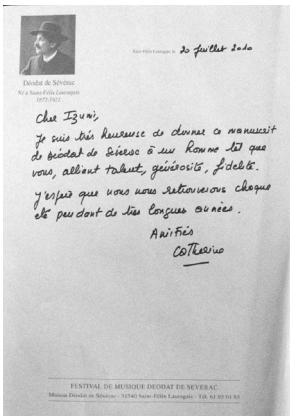 Déodat de Séverac
Né à Saint-Félix Lauragais
1872-1921
Saint-Félix Lauragais, le 20 Juillet 2010
Cher Izumi,
Je suis très heureuse de donner ce manuscrit
de Déodat de Séverac à un homme tel que
vous, alliant talent, générosité, fidélité.
J'espère que nous nous retrouverons chaque
été pendant de très longues années.
Amitiés
Catherine
FESTIVAL DE MUSIQUE DEODAT DE SEVERAC
Maison Déodat de Séverac - 31540 Saint-Félix Lauragais - Tél.